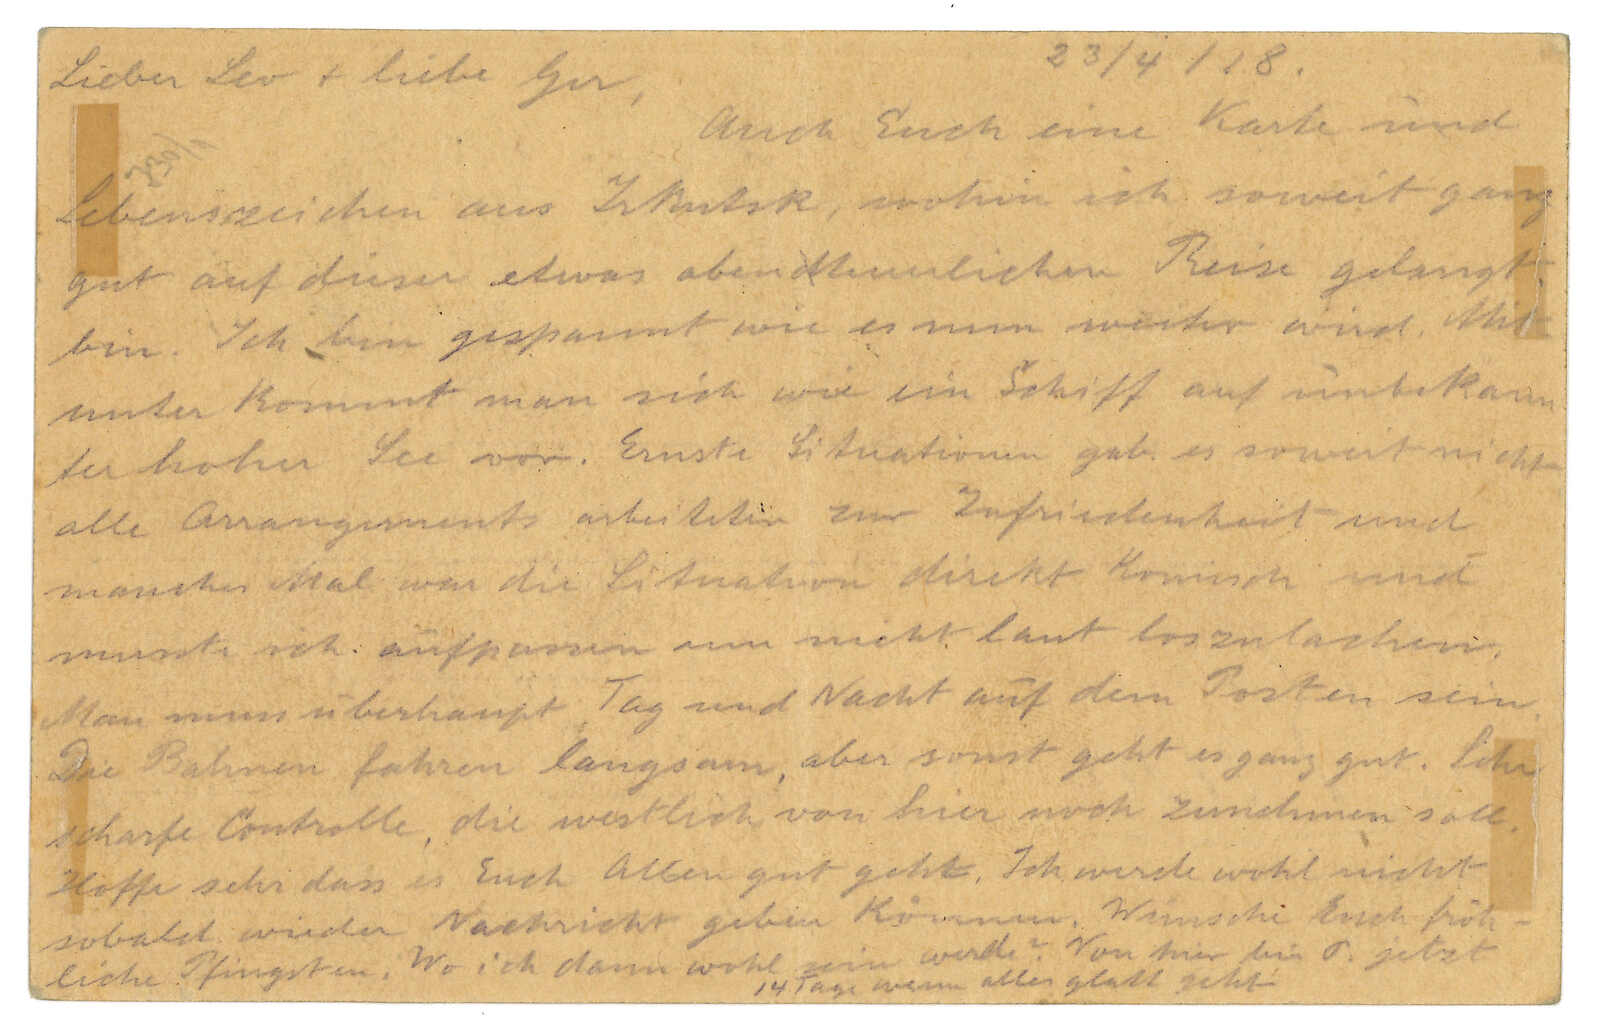 23/4/18.
Lieber Leo + liebe Ger,
Auch Euch eine Karte und
Lebenszeichen aus Irkutsk, wohin ich soweit ganz
gut auf dieser etwas abendteuerlichen Reise gelangt
bin. Ich bin gespannt wie es nun weiter wird. Mit
unter kommt man sich wie ein Schiff auf unbekann
ter hoher See vor. Ernste Situationen gab es soweit nicht
alle Arrangements arbeiteten zur Zufriedenheit und
manches Mal war die Situation direkt komisch und
musste ich aufpassen um nicht laut loszulachen.
Man muss überhaupt Tag und Nacht auf dem Posten sein.
Die Bahnen fahren langsam, aber sonst geht es ganz gut. Sehr
scharfe Controlle, die westlich von hier noch zunehmen soll.
Hoffe sehr dass es Euch Allen gut geht. Ich werde wohl nicht
sobald wieder Nachricht geben können. Wünsche Euch fröh-
liche Pfingsten. Wo ich dann wohl sein werde? Von hier bis P. jetzt
14 Tage wenn alles glatt geht